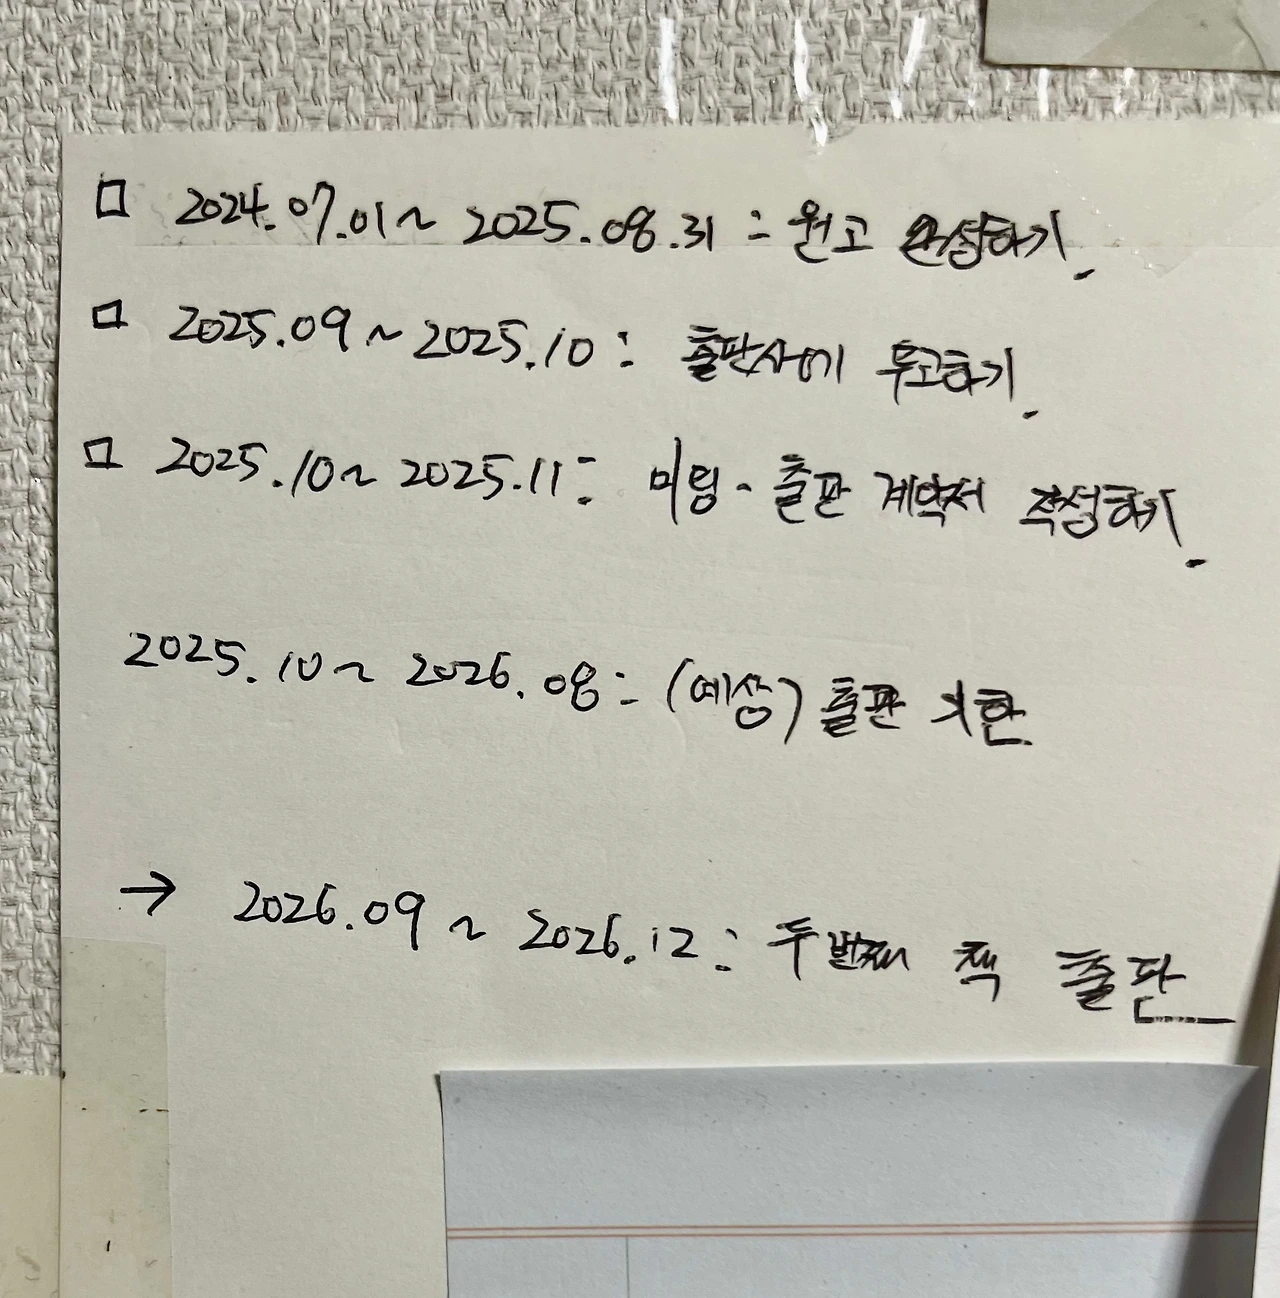 □ 2024.07.01 ~ 2025.08.31 : 원고 완성하기.
□ 2025.09 ~ 2025.10 : 출판사에 투고하기.
□ 2025.10 ~ 2025.11 : 미팅 · 출판 계약서 작성하기.
2025.10 ~ 2026.08 : (예상) 출판 기한
→ 2026.09 ~ 2026.12 : 두번째 책 출판